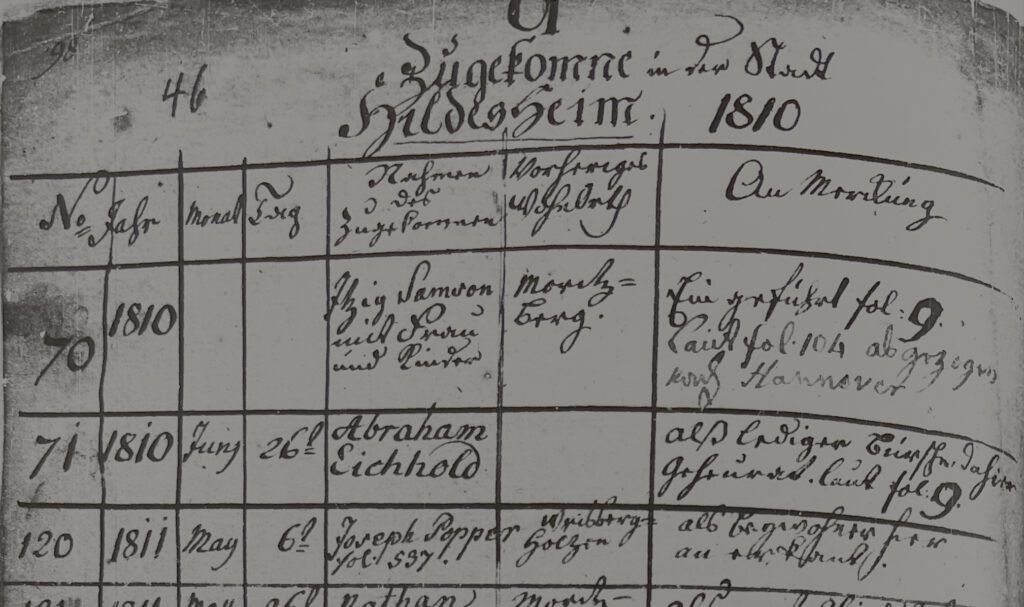 9
46
Zugekomne in der Stadt
Hildesheim. 1810
No Jahr Monat Tag Nahmen des Zugekommen Vorheriges Wohnorth An Merckung
70 1810 Itzig Samson Moritz=
mit Frau berg.
und Kinder
Ein geführt fol: 9.
Laut fol. 104 abgezogen
nach Hannover
71 1810 Juny 26t Abraham
Eichhold
alß lediger Bürsche dahier
geheurat. laut fol: 9.
120 1811 May 6t Joseph Popper
fol: 537.
Holzen
als beywohner hier
an erkant.
Nathan Moritz=